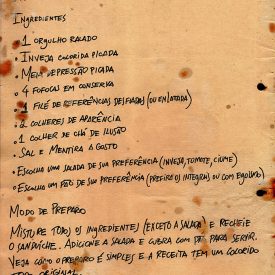 Ingredientes
• 1 orgulho ralado
• Inveja colorida picada
• Meia depressão picada
• 4 fofocas em conserva
• 1 filé de referências desfiadas (ou enlatada)
• 2 colheres de aparência
• 1 colher de chá de ilusão
• Sal e mentira a gosto
• Escolha uma salada de sua preferência (inveja, tomate, ciúme)
• Escolha um pão de sua preferência (prefiro os integrais, ou com egoísmo)
Modo de Preparo
Misture todos os ingredientes (exceto a salada) e recheie
o sanduíche. Adicione a salada e cubra com pão para servir.
Veja como o preparo é simples e a receita tem um colorido